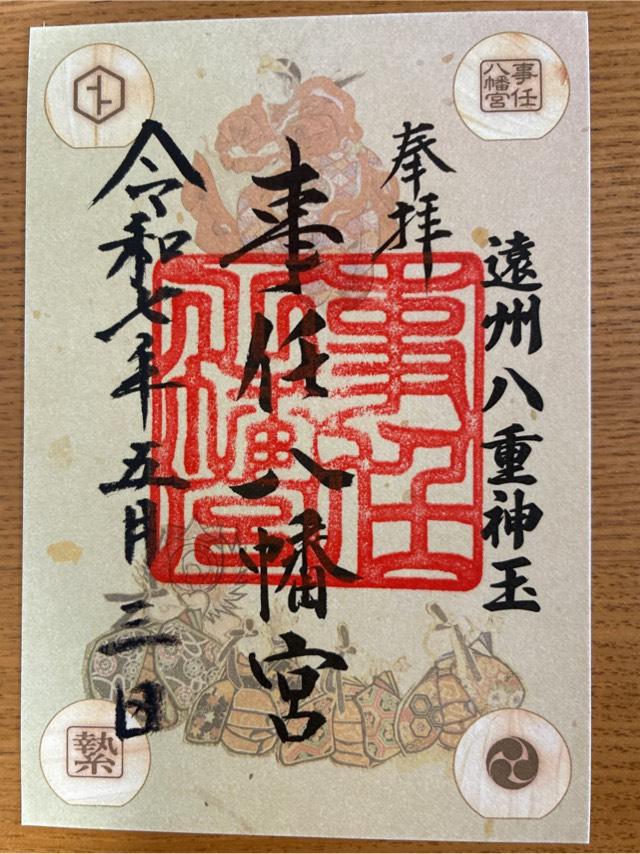 遠州八重神玉
奉拝
事任八幡宮
令和七年五月三日
事任
八幡宮
事任
八幡宮